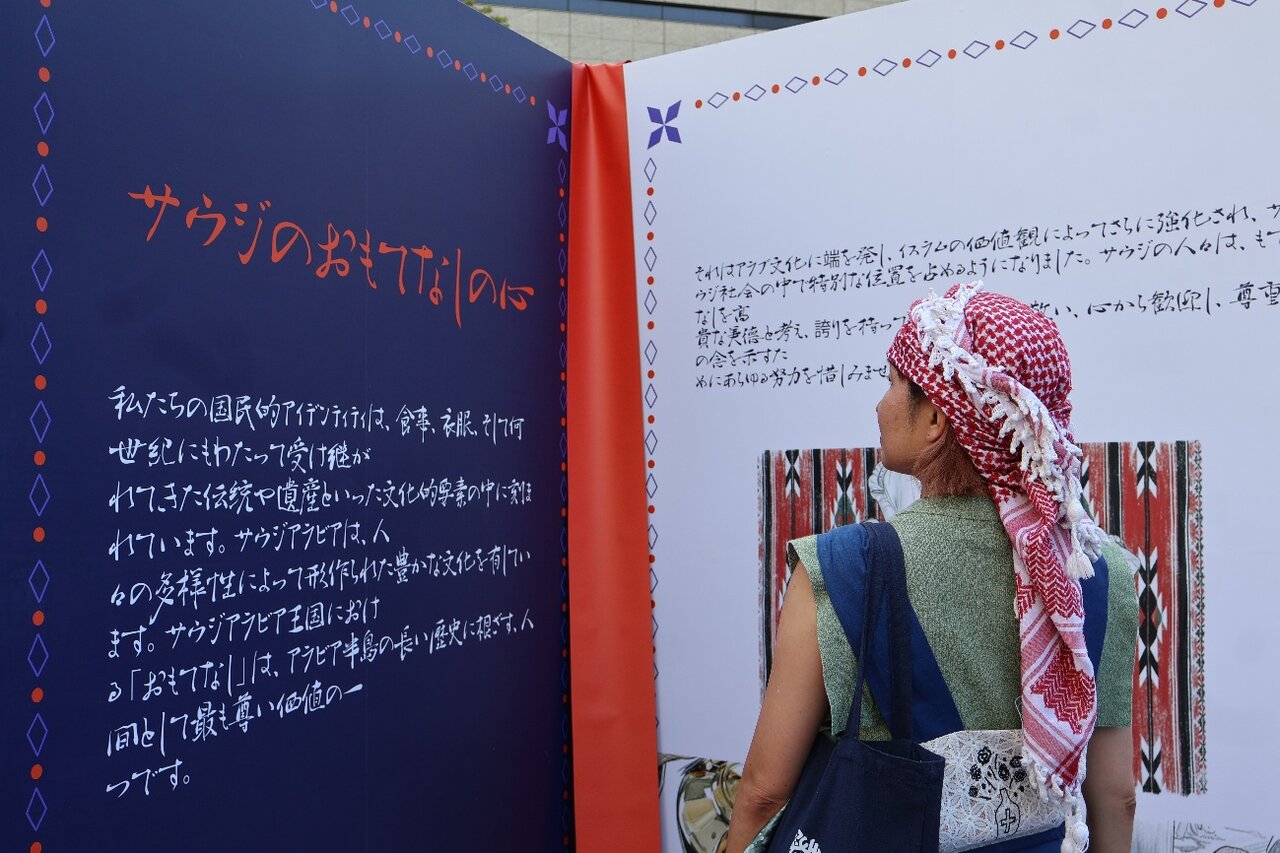 サウジのおもてなしの心
私たちの国民的アイデンティティは、食事、衣服、そして何
世紀にもわたって受け継が
れてきた伝統や遺産といった文化的要素の中に刻ま
れています。サウジアラビアは、人
々の多様性によって形作られた豊かな文化を有してい
ます。サウジアラビア王国におけ
る「おもてなし」は、アラビア半島の長い歴史に根ざす、人
間として最も尊い価値の一
つです。
それはアラブ文化に端を発し、イスラムの価値観によってさらに強化され、サ
ウジ社会の中で特別な位置を占めるようになりました。サウジの人々は、もて
なしを高
貴な美徳と考え、誇りを持って い、心から歓迎し、尊重
の念を示すた
めにあらゆる努力を惜しみませ